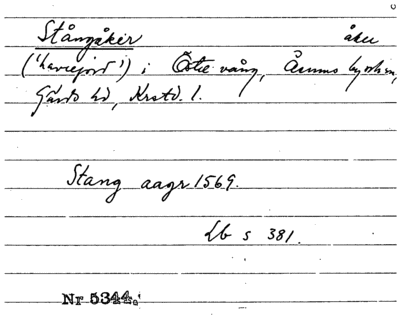 Stångåker åker
('havrejord') i Östre vång, Åsums by o. hn,
Gärds hd, Krstd. l.
Stang aagr 1569.
Lb s 381.
Nr 5344.